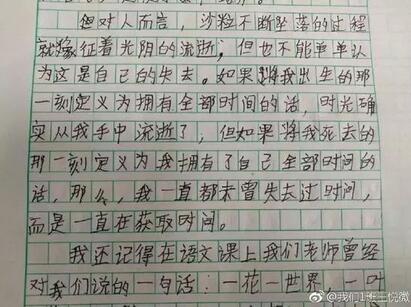 但对人而言，沙粒不断坠落的过程
就像征着光阴的流逝；但也不能单单认
为这是自己的失去。如果将我出生的那
一刻定义为拥有全部时间的话，时光确
实从我手中流逝了，但如果将我死去的
那一刻定义为我拥有了自己全部时间的
话，那么，我一直都未曾失去过时间，
而是一直在获取时间。
我还记得在语文课上我们老师曾经
对我们说的一句话：一花一世界，一叶
@我们1班王悦微